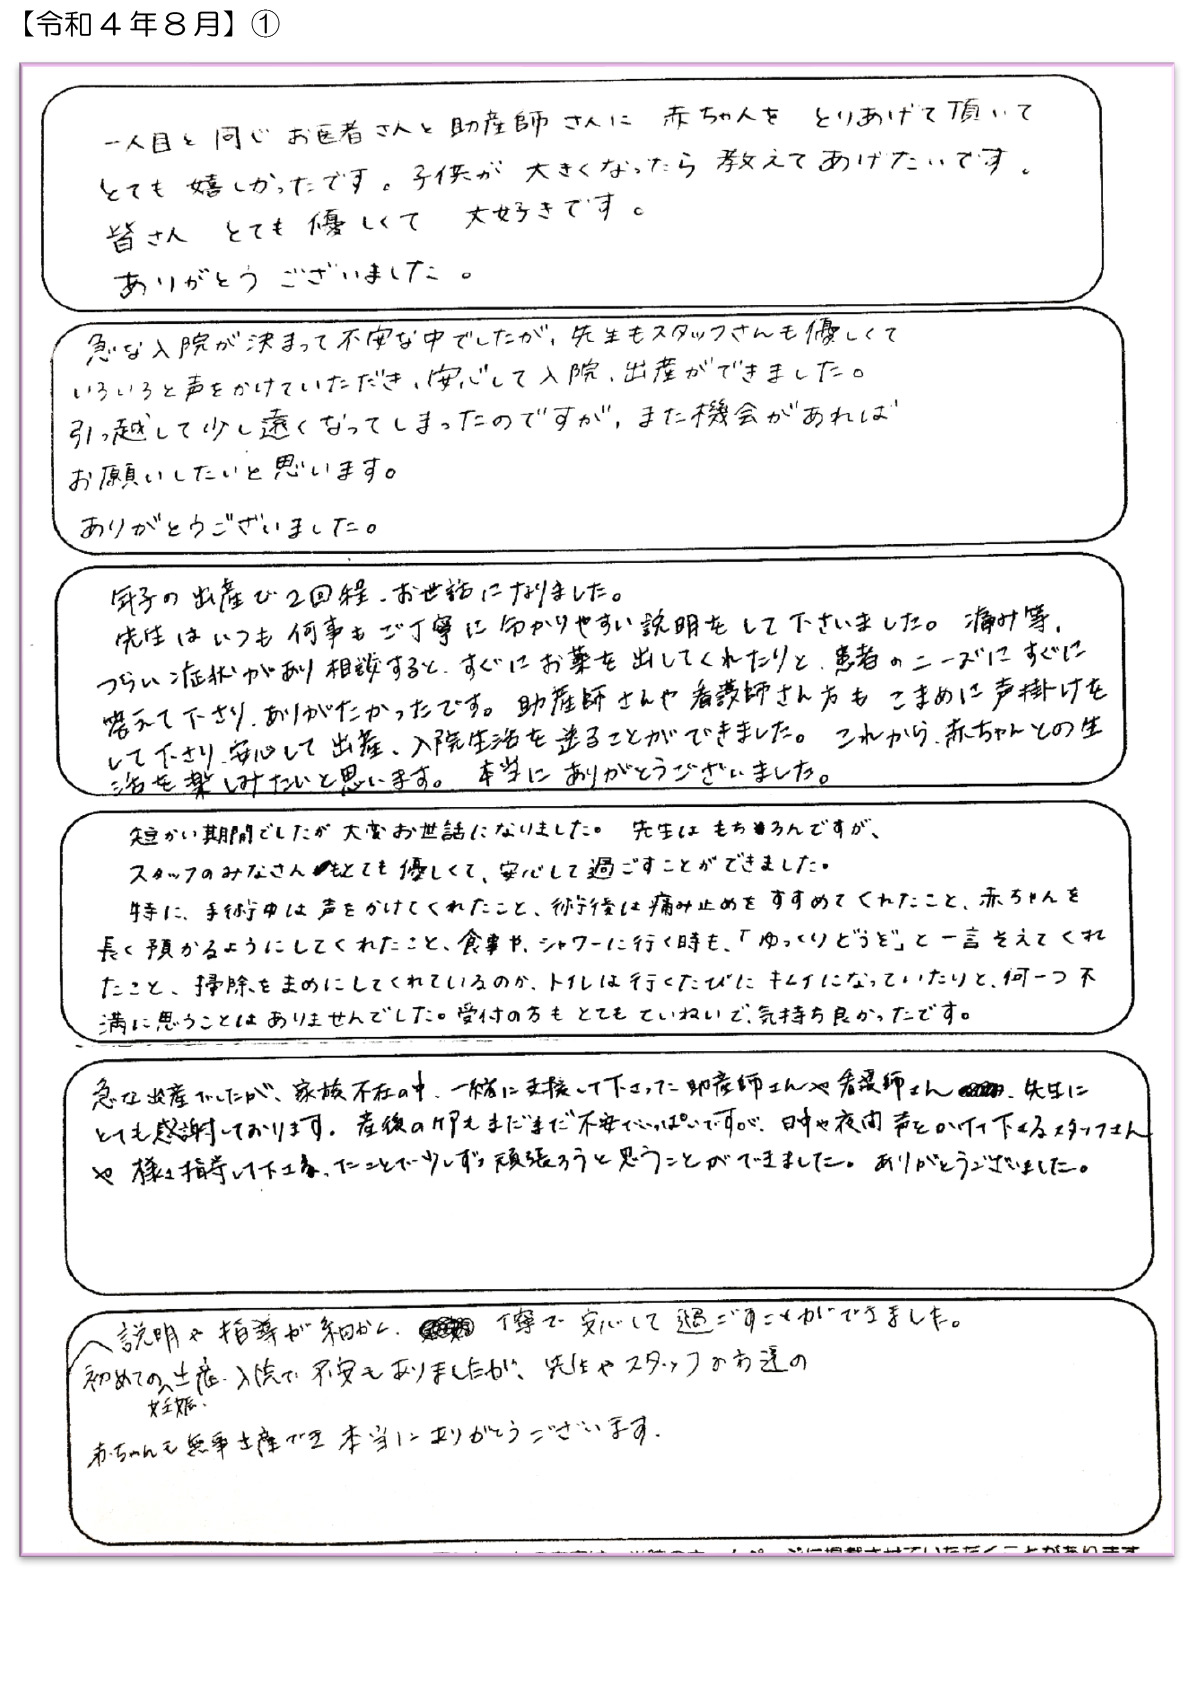 【令和４年８月】①
一人目と同じお医者さんと助産師さんに 赤ちゃんを とりあげて頂いて
とても嬉しかったです。子供が大きくなったら教えてあげたいです。
皆さん とても優しくて 大好きです。
ありがとうございました。
急な入院が決まって不安な中でしたが、先生もスタッフさんも優しくて
いろいろと声をかけていただき、安心して入院、出産ができました。
引っ越して少し遠くなってしまったのですが、また機会があれば
お願いしたいと思います。
ありがとうございました。
年子の出産で2回程、お世話になりました。
先生はいつも何事もご丁寧に分かりやすい説明をして下さいました。痛み等、
つらい症状があり相談すると、すぐにお薬を出してくれたりと、患者のニーズにすぐに
答えて下さり、ありがたかったです。助産師さんや看護師さん方もこまめに声掛けを
して下さり、安心して出産、入院生活を送ることができました。これから、赤ちゃんとの生
活を楽しみたいと思います。 本当にありがとうございました。
短かい期間でしたが大変お世話になりました。 先生はもちろんですが、
スタッフのみなさんもとても優しくて、安心して過ごすことができました。
特に、手術中は声をかけてくれたこと、術後は痛み止めをすすめてくれたこと、赤ちゃんを
長く預かるようにしてくれたこと、食事や、シャワーに行く時も、「ゆっくりどうぞ」と一言そえてくれ
たこと、掃除をまめにしてくれているのか、トイレは行くたびにキレイになっていたりと、何一つ不
満に思うことはありませんでした。受付の方もとてもていねいで、気持ち良かったです。
急な出産でしたが、家族不在の中、一緒に支援して下さった助産師さんや看護師さん、先生に
とても感謝しております。産後のケアもまだまだ不安でいっぱいですが、日中や夜間声をかけて下さるスタッフさん
や 様々指導して下さったことで少しずつ頑張ろうと思うことができました。ありがとうございました。
説明や指導が細かく、丁寧で安心して過ごすことができました。
初めての出産、入院で不安もありましたが、先生やスタッフの方達の
妊娠、
赤ちゃんも無事出産でき本当にありがとうございます。